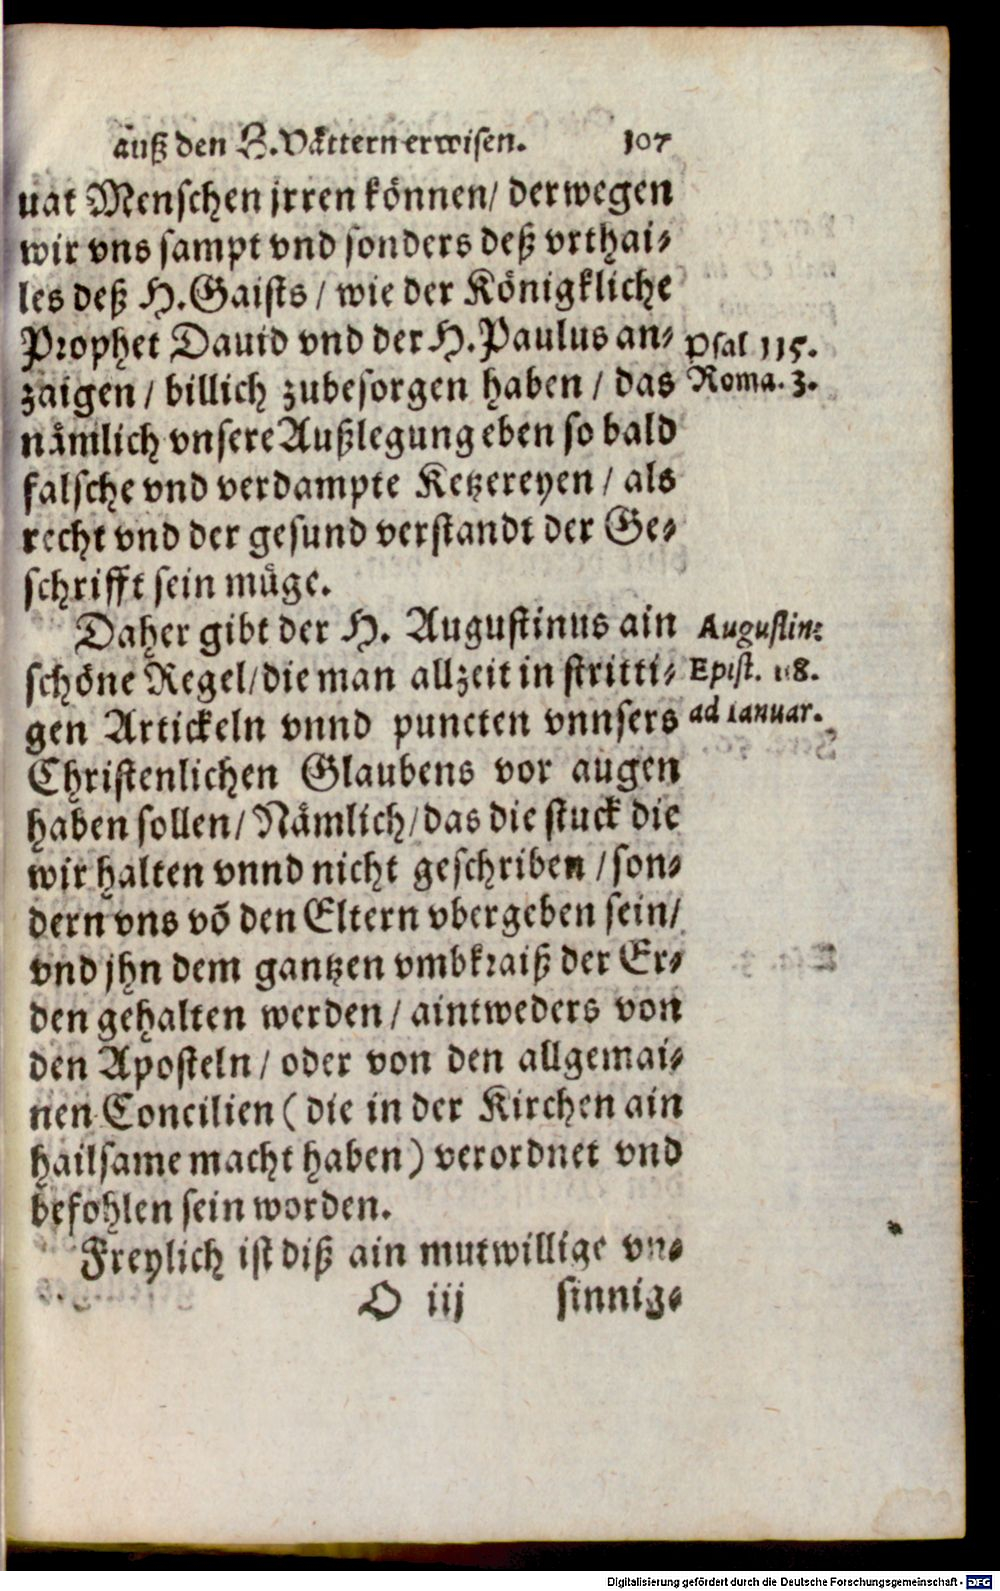 auß den H. Vättern erwisen. 107
uat Menschen jrren können/ derwegen
wir vns sampt vnd sonders deß vrthai⸗
les deß H. Gaists / wie der Königkliche
Prophet Dauid vnd der H. Paulus an⸗
Psal 115.
zaigen / billich zubesorgen haben / das
Roma. 3.
nämlich vnsere Außlegung eben so bald
falsche vnd verdampte Ketzereyen / als
recht vnd der gesund verstandt der Ge⸗
schrifft sein müge.
Daher gibt der H. Augustinus ain
Augustin:
schöne Regel/ die man allzeit in stritti⸗
Epist. 118.
gen Artickeln vnnd puncten vnnsers
ad Ianuar.
Christenlichen Glaubens vor augen
haben sollen/ Nämlich/ das die stuck die
wir halten vnnd nicht geschriben / son⸗
dern vns võ den Eltern vbergeben sein/
vnd jhn dem gantzen vmbkraiß der Er⸗
den gehalten werden / aintweders von
den Aposteln / oder von den allgemai⸗
nen Concilien ( die in der Kirchen ain
hailsame macht haben ) verordnet vnd
befohlen sein worden.
Freylich ist diß ain mutwillige vn⸗
O iij sinnig⸗
Digitalisierung gefördert durch die Deutsche Forschungsgemeinschaft - DFG